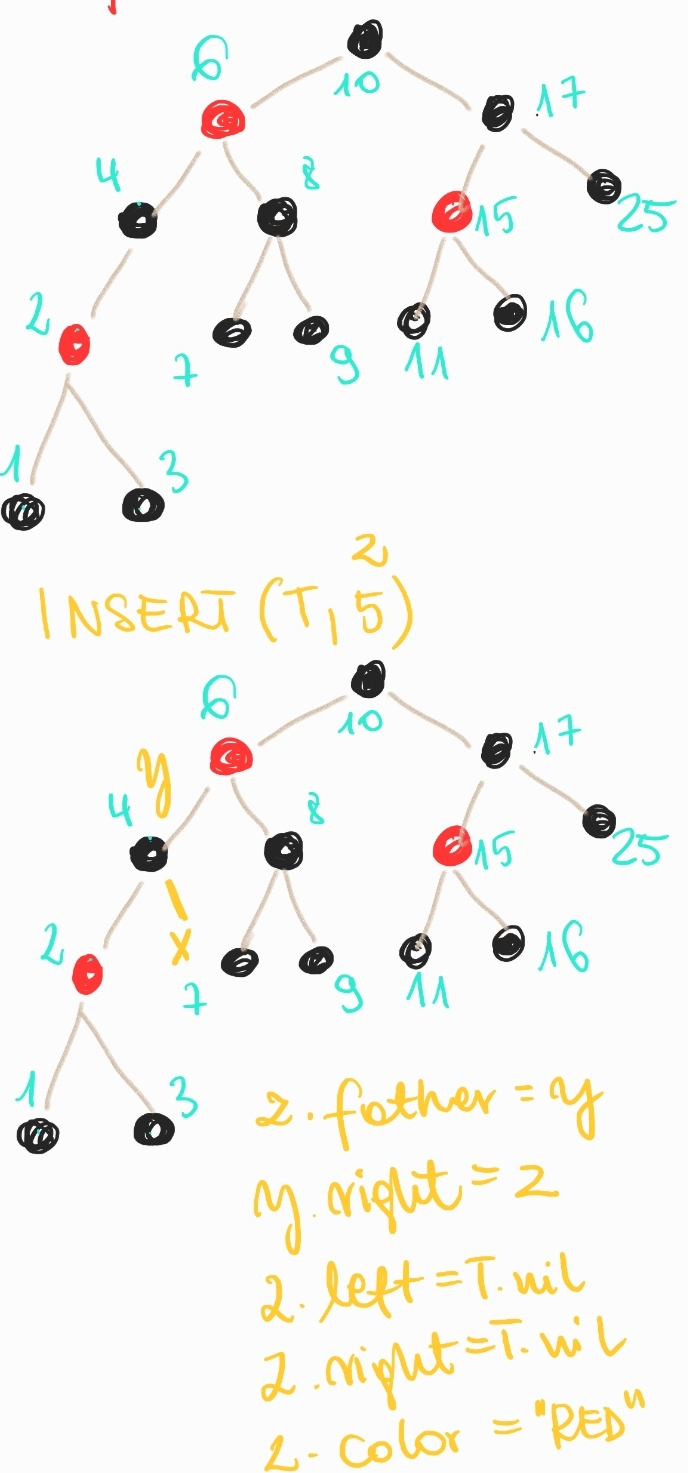 6 10 17
4 8 15 25
2 7 9 11 16
1 3
z
INSERT (T, 5)
6 10 17
y
4 8 15 25
2 x 7 9 11 16
1 3
z.father = y
y.right = z
z.left = T.nil
z.right = T.nil
z.color = "RED"